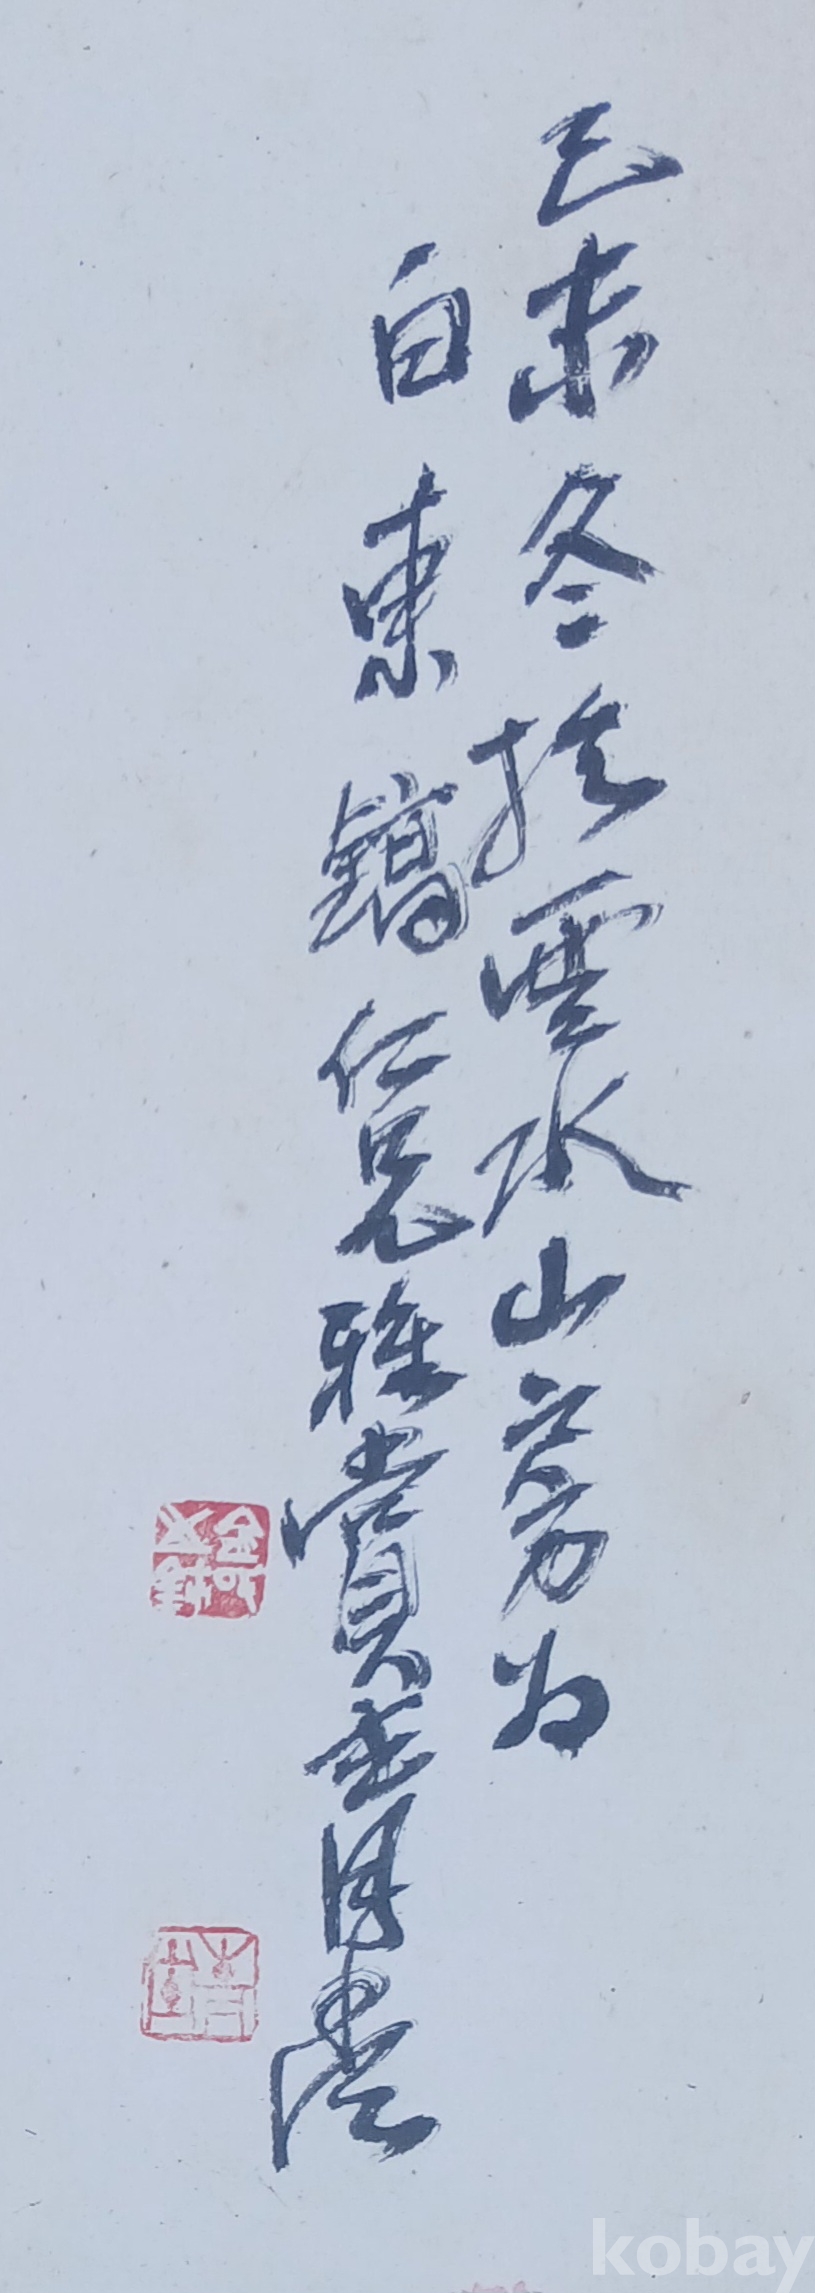 己未冬於雲水山房为
白東鎬仁兄雅賞 月堂
kobay